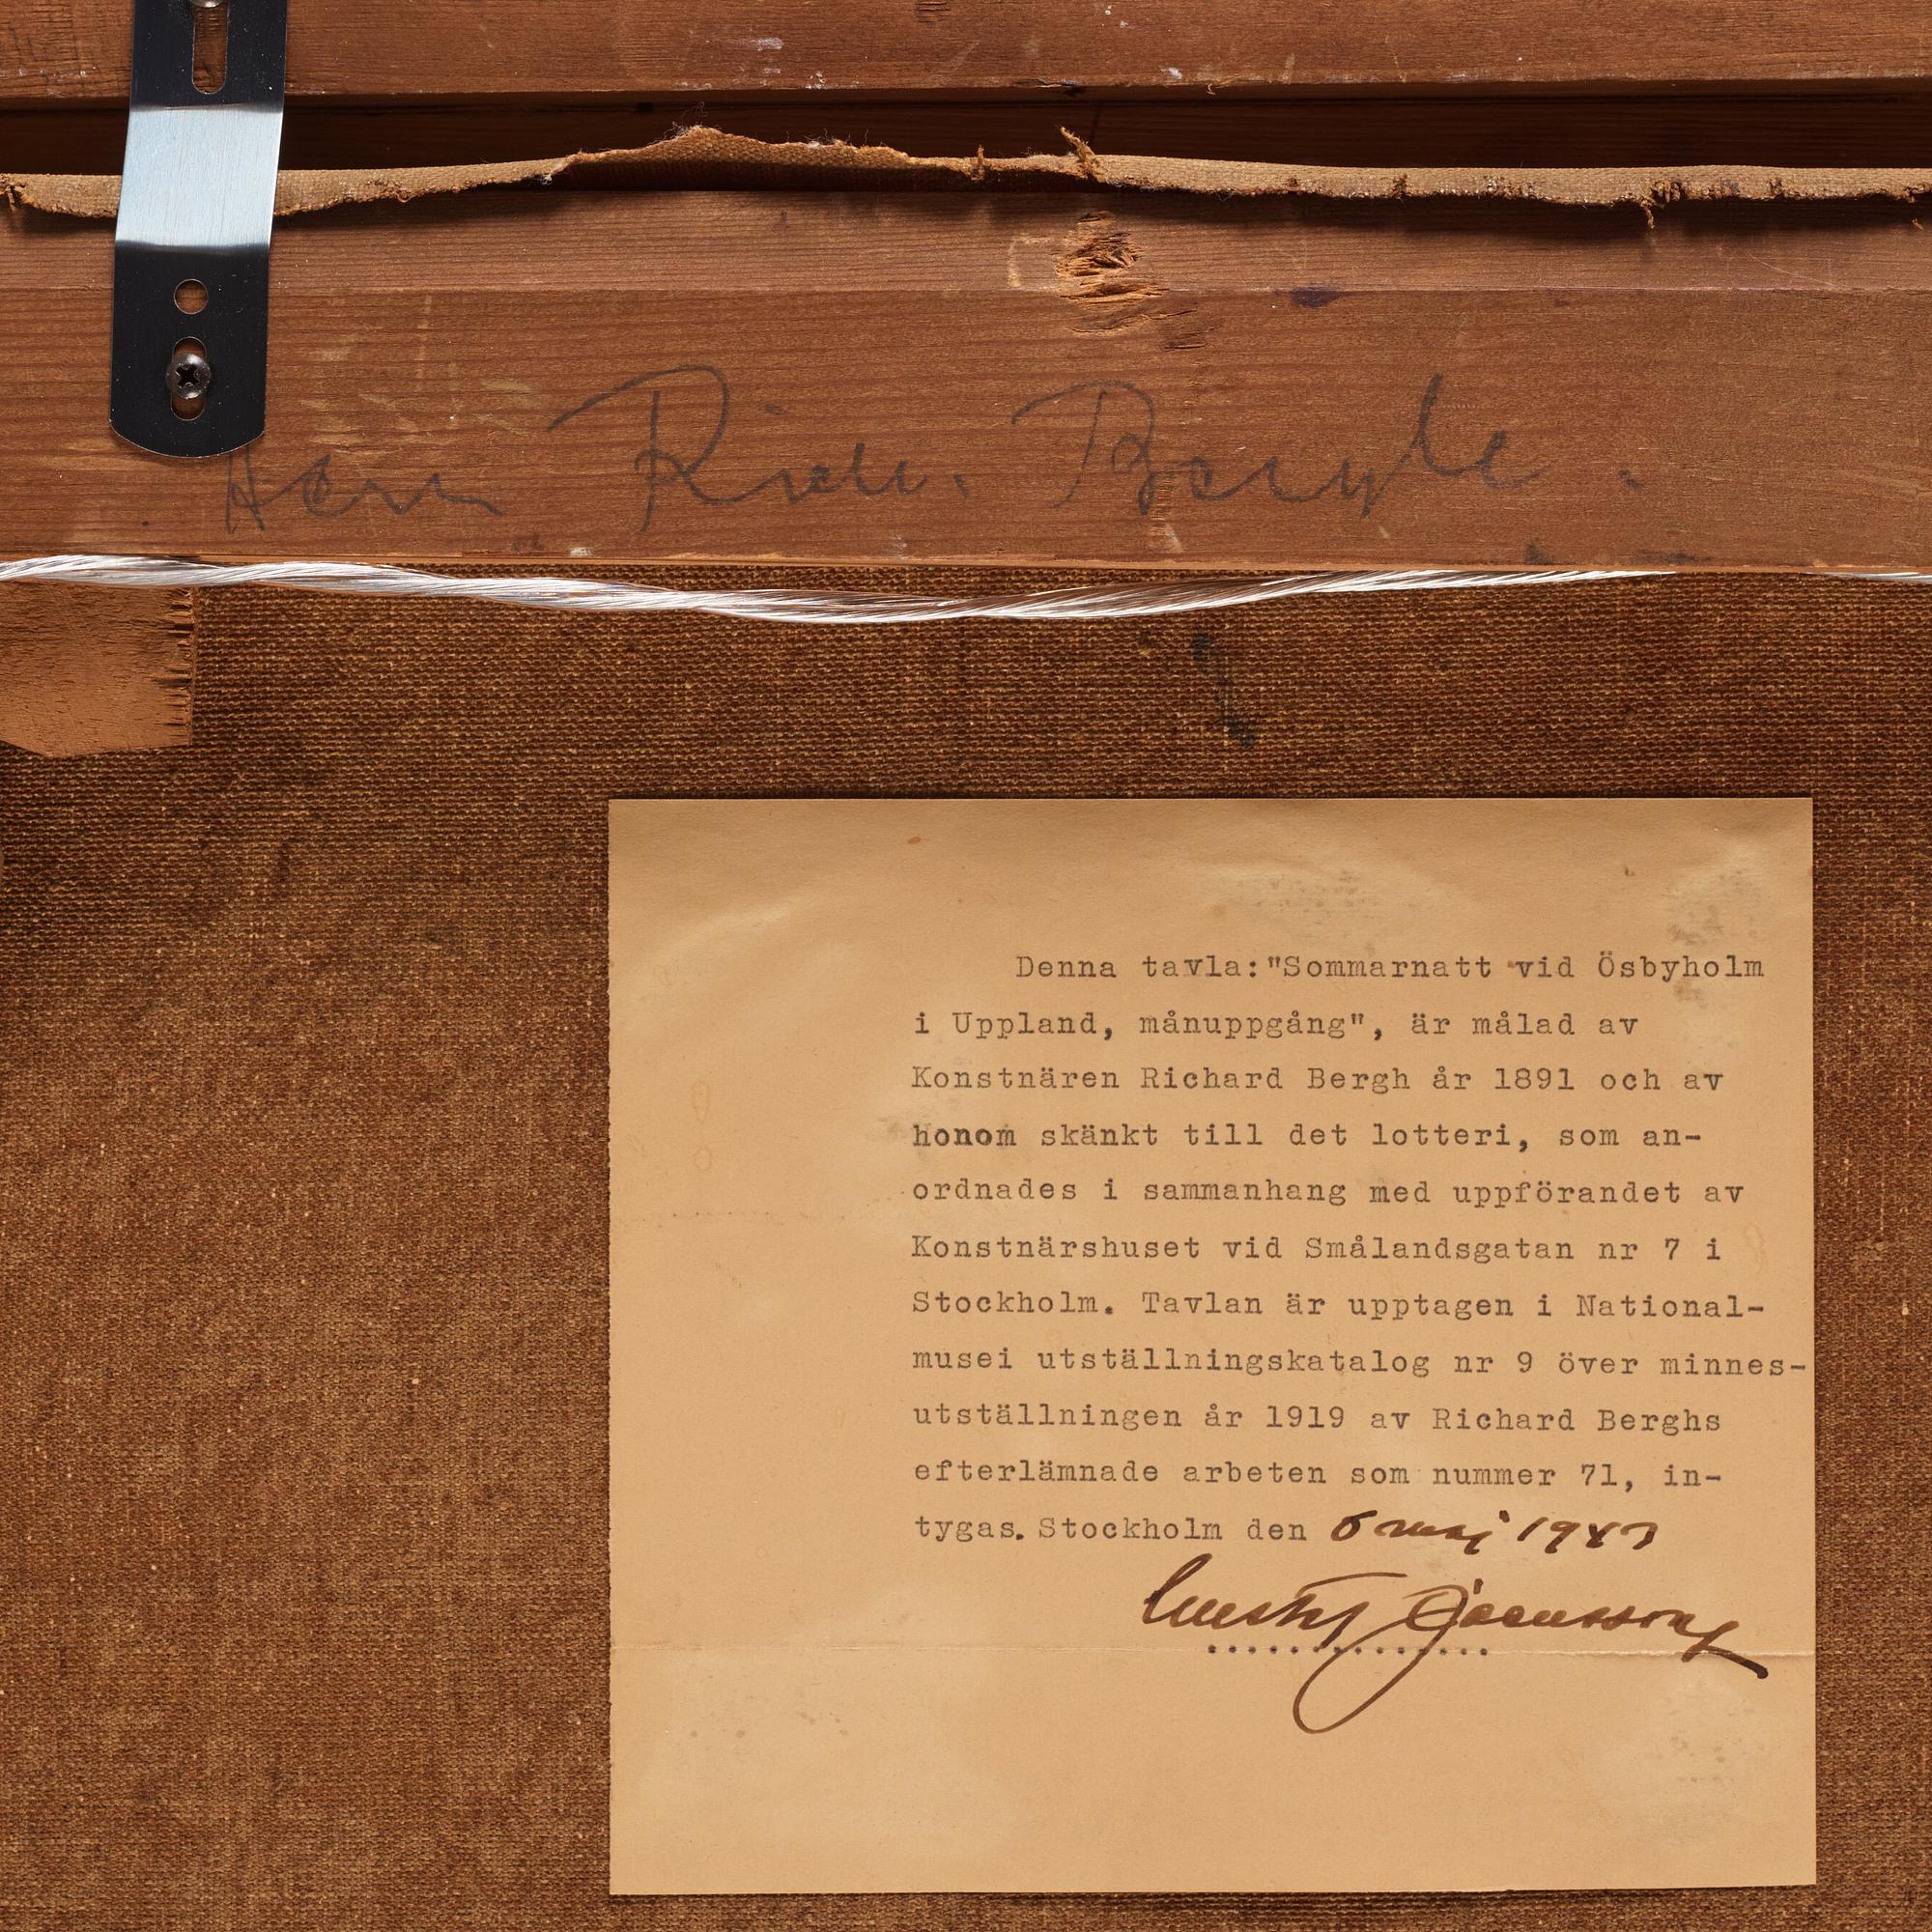 Herrn Rich. Bergh.
Denna tavla:"Sommarnatt vid Ösbyholm
i Uppland, månuppgång", är målad av
Konstnären Richard Bergh år 1891 och av
honom skänkt till det lotteri, som an-
ordnades i sammanhang med uppförandet av
Konstnärshuset vid Smålandsgatan nr 7 i
Stockholm. Tavlan är upptagen i National-
musei utställningskatalog nr 9 över minnes-
utställningen år 1919 av Richard Berghs
efterlämnade arbeten som nummer 71, in-
tygas. Stockholm den 6 maj 1943